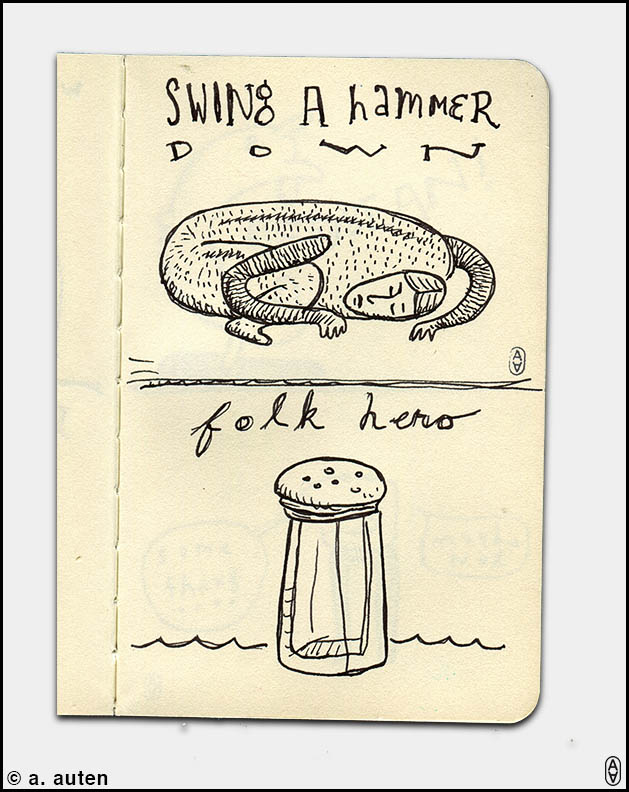 SWING A hammER
DOWN
folk hero
© a. auten